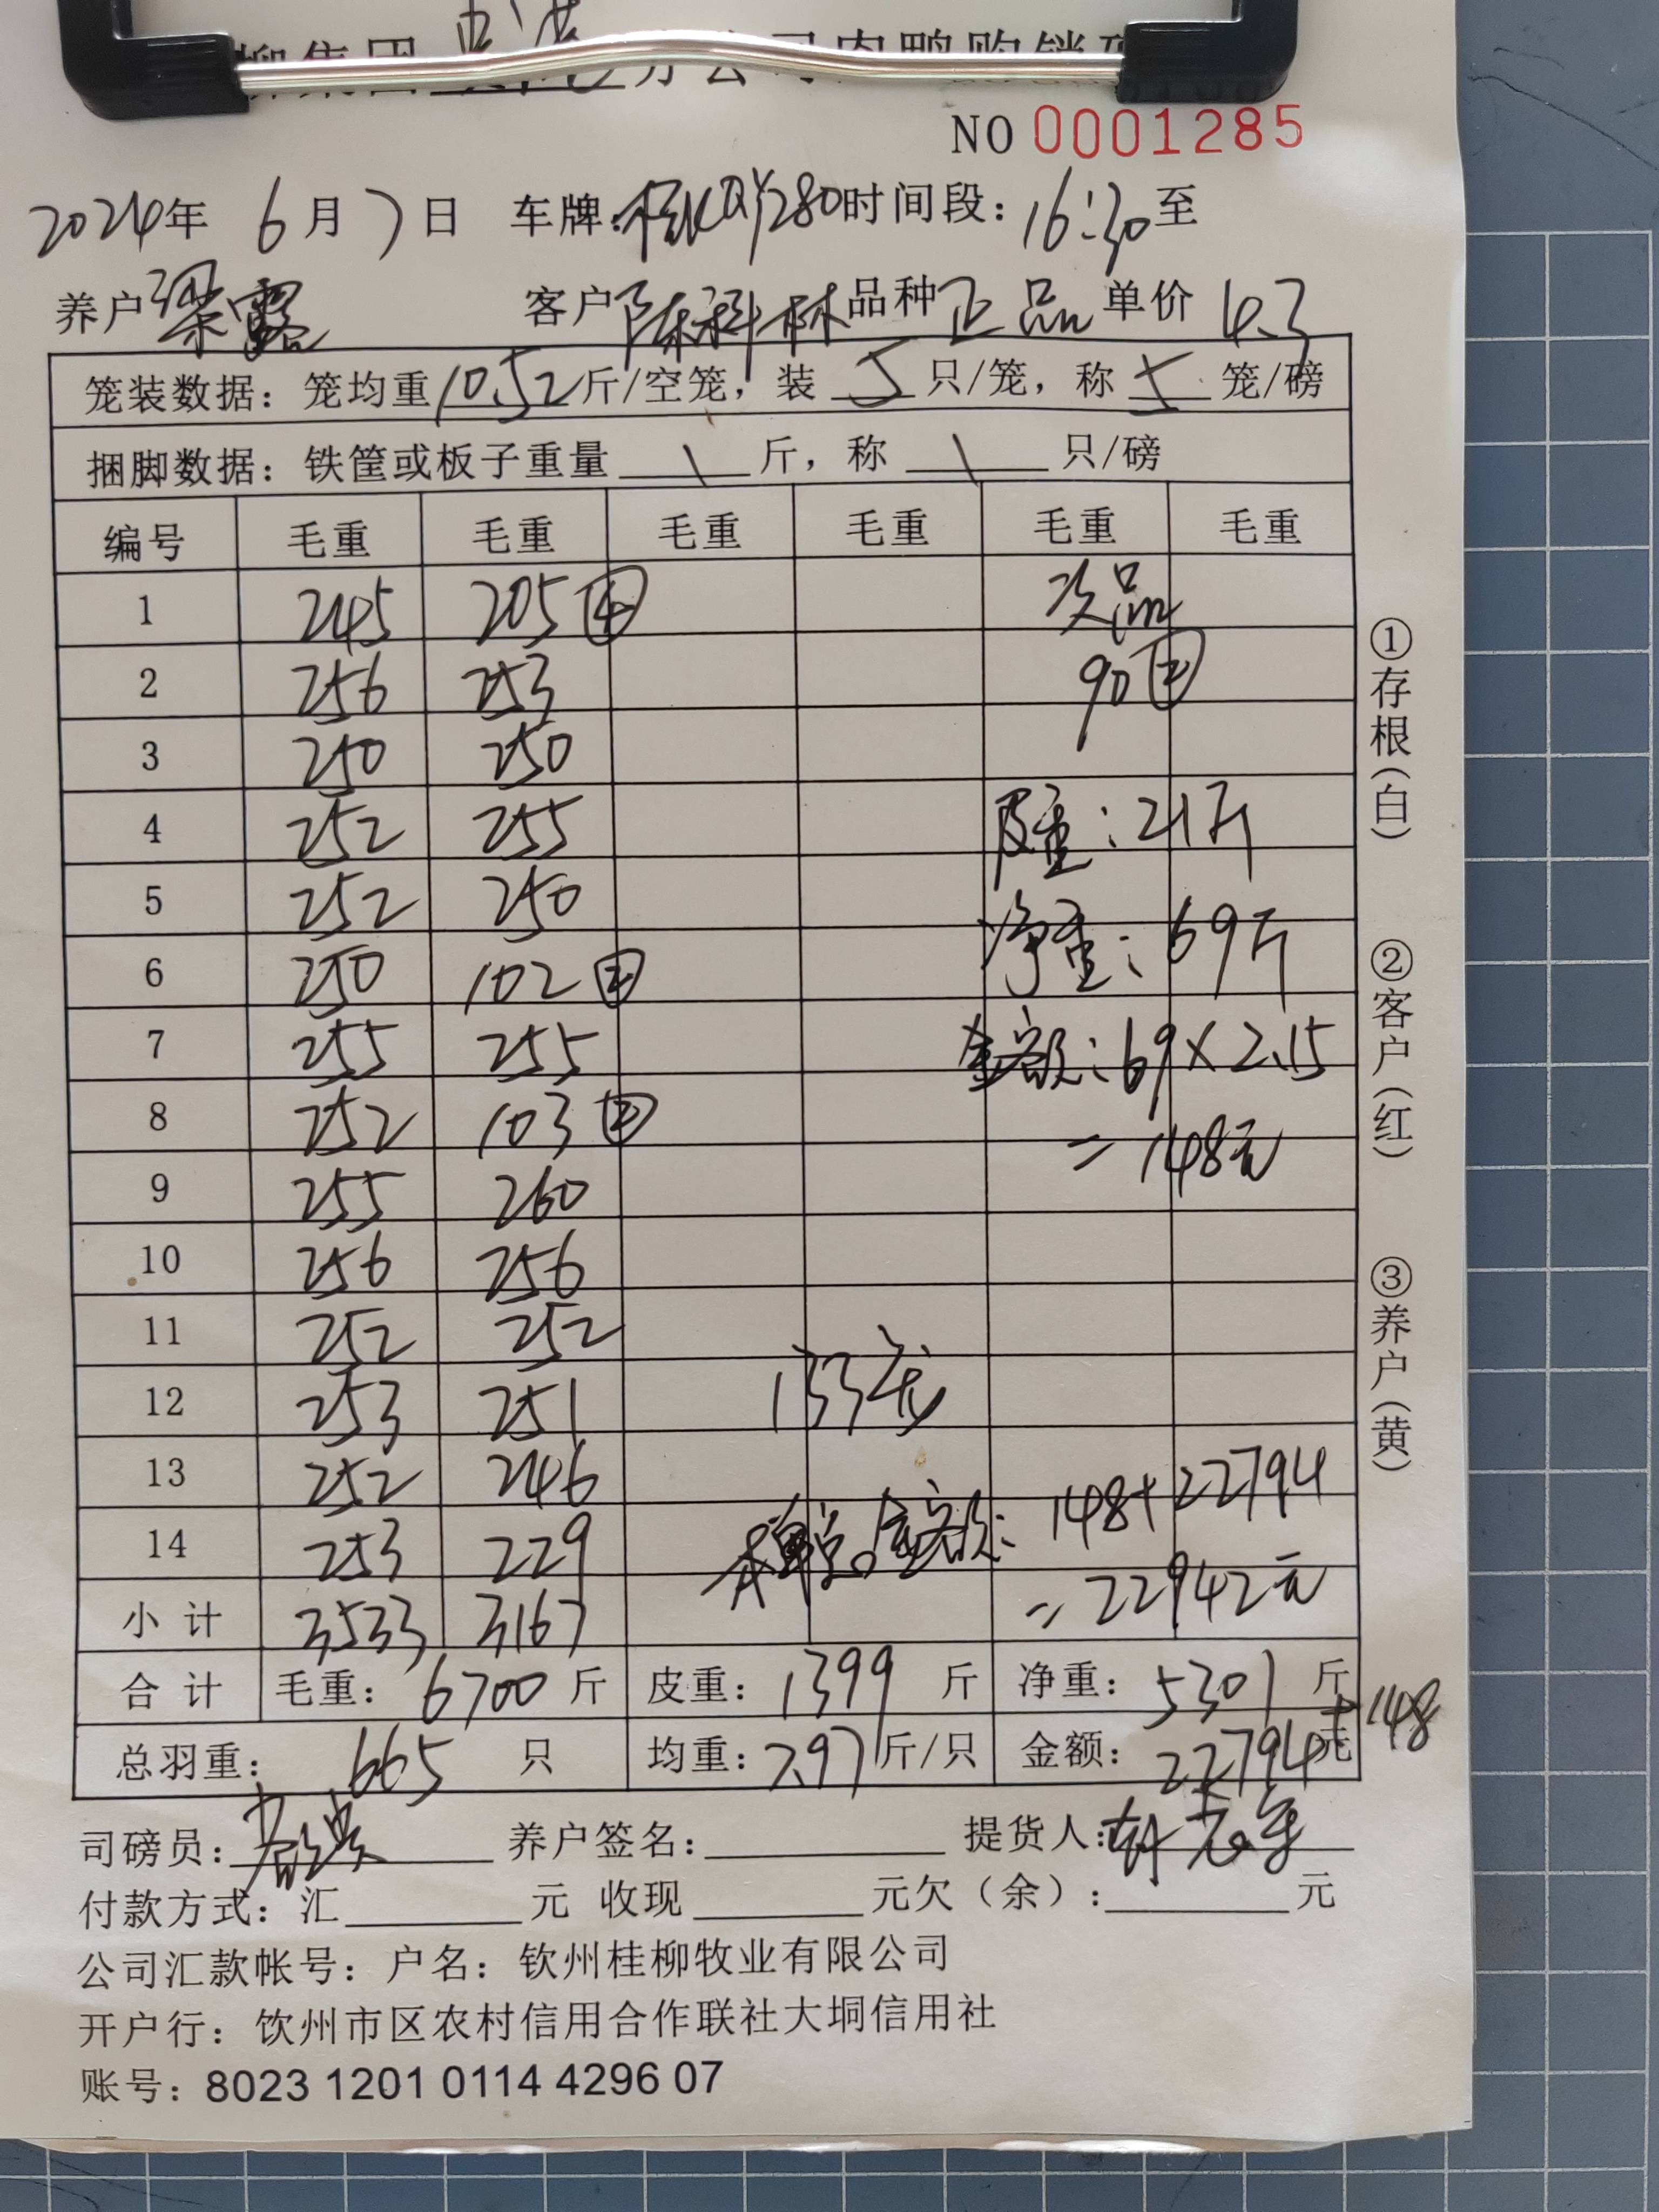 柳集团贵港分公司肉鸭购销
NO 0001285
2024年 6月 7日 车牌: 280 时间段: 16:30 至
养户 梁露 客户 陈科林 品种 正品 单价 4.3
笼装数据: 笼均重 10.52 斤/空笼, 装 5 只/笼, 称 5 笼/磅
捆脚数据: 铁筐或板子重量 \ 斤, 称 \ 只/磅
编号 毛重 毛重 毛重 毛重 毛重 毛重
1 245 205 ④ 次品
2 256 253 90 ②
3 250 250
4 252 255 皮重: 21斤
5 252 250 净重: 69斤
6 250 102 ②
7 255 255 金额: 69×2.15
8 252 103 ② =148元
9 255 260
10 256 256
11 252 252
12 253 251 133笼
13 252 246
14 253 229 本单总金额: 148+22794
小计 3533 3167 =22942元
合计 毛重: 6700 斤 皮重: 1399 斤 净重: 5301 斤
总羽重: 665 只 均重: 7.97 斤/只 金额: 22794元 +148
司磅员: 养户签名: 提货人:
付款方式: 汇 元 收现 元欠(余): 元
公司汇款帐号: 户名: 钦州桂柳牧业有限公司
开户行: 饮州市区农村信用合作联社大垌信用社
账号: 8023 1201 0114 4296 07
①存根(白)
②客户(红)
③养户(黄)